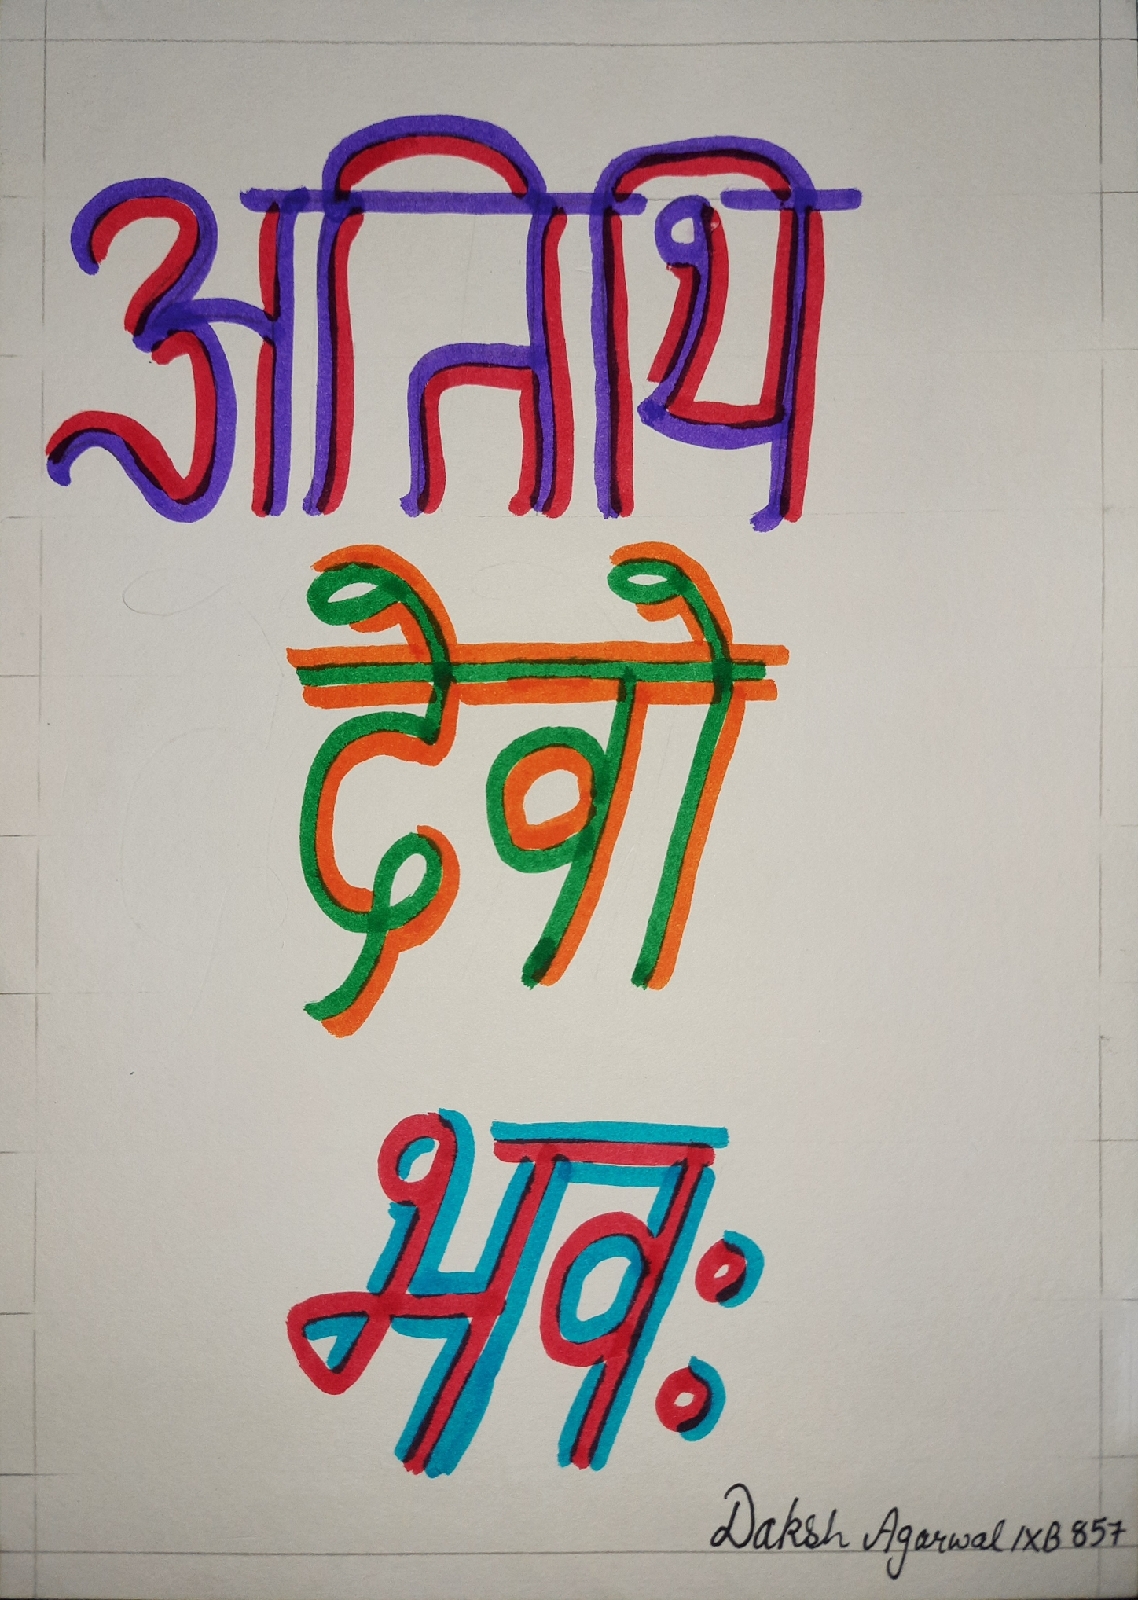 अतिथि
देवो
भवः
Daksh Agarwal IXB 857